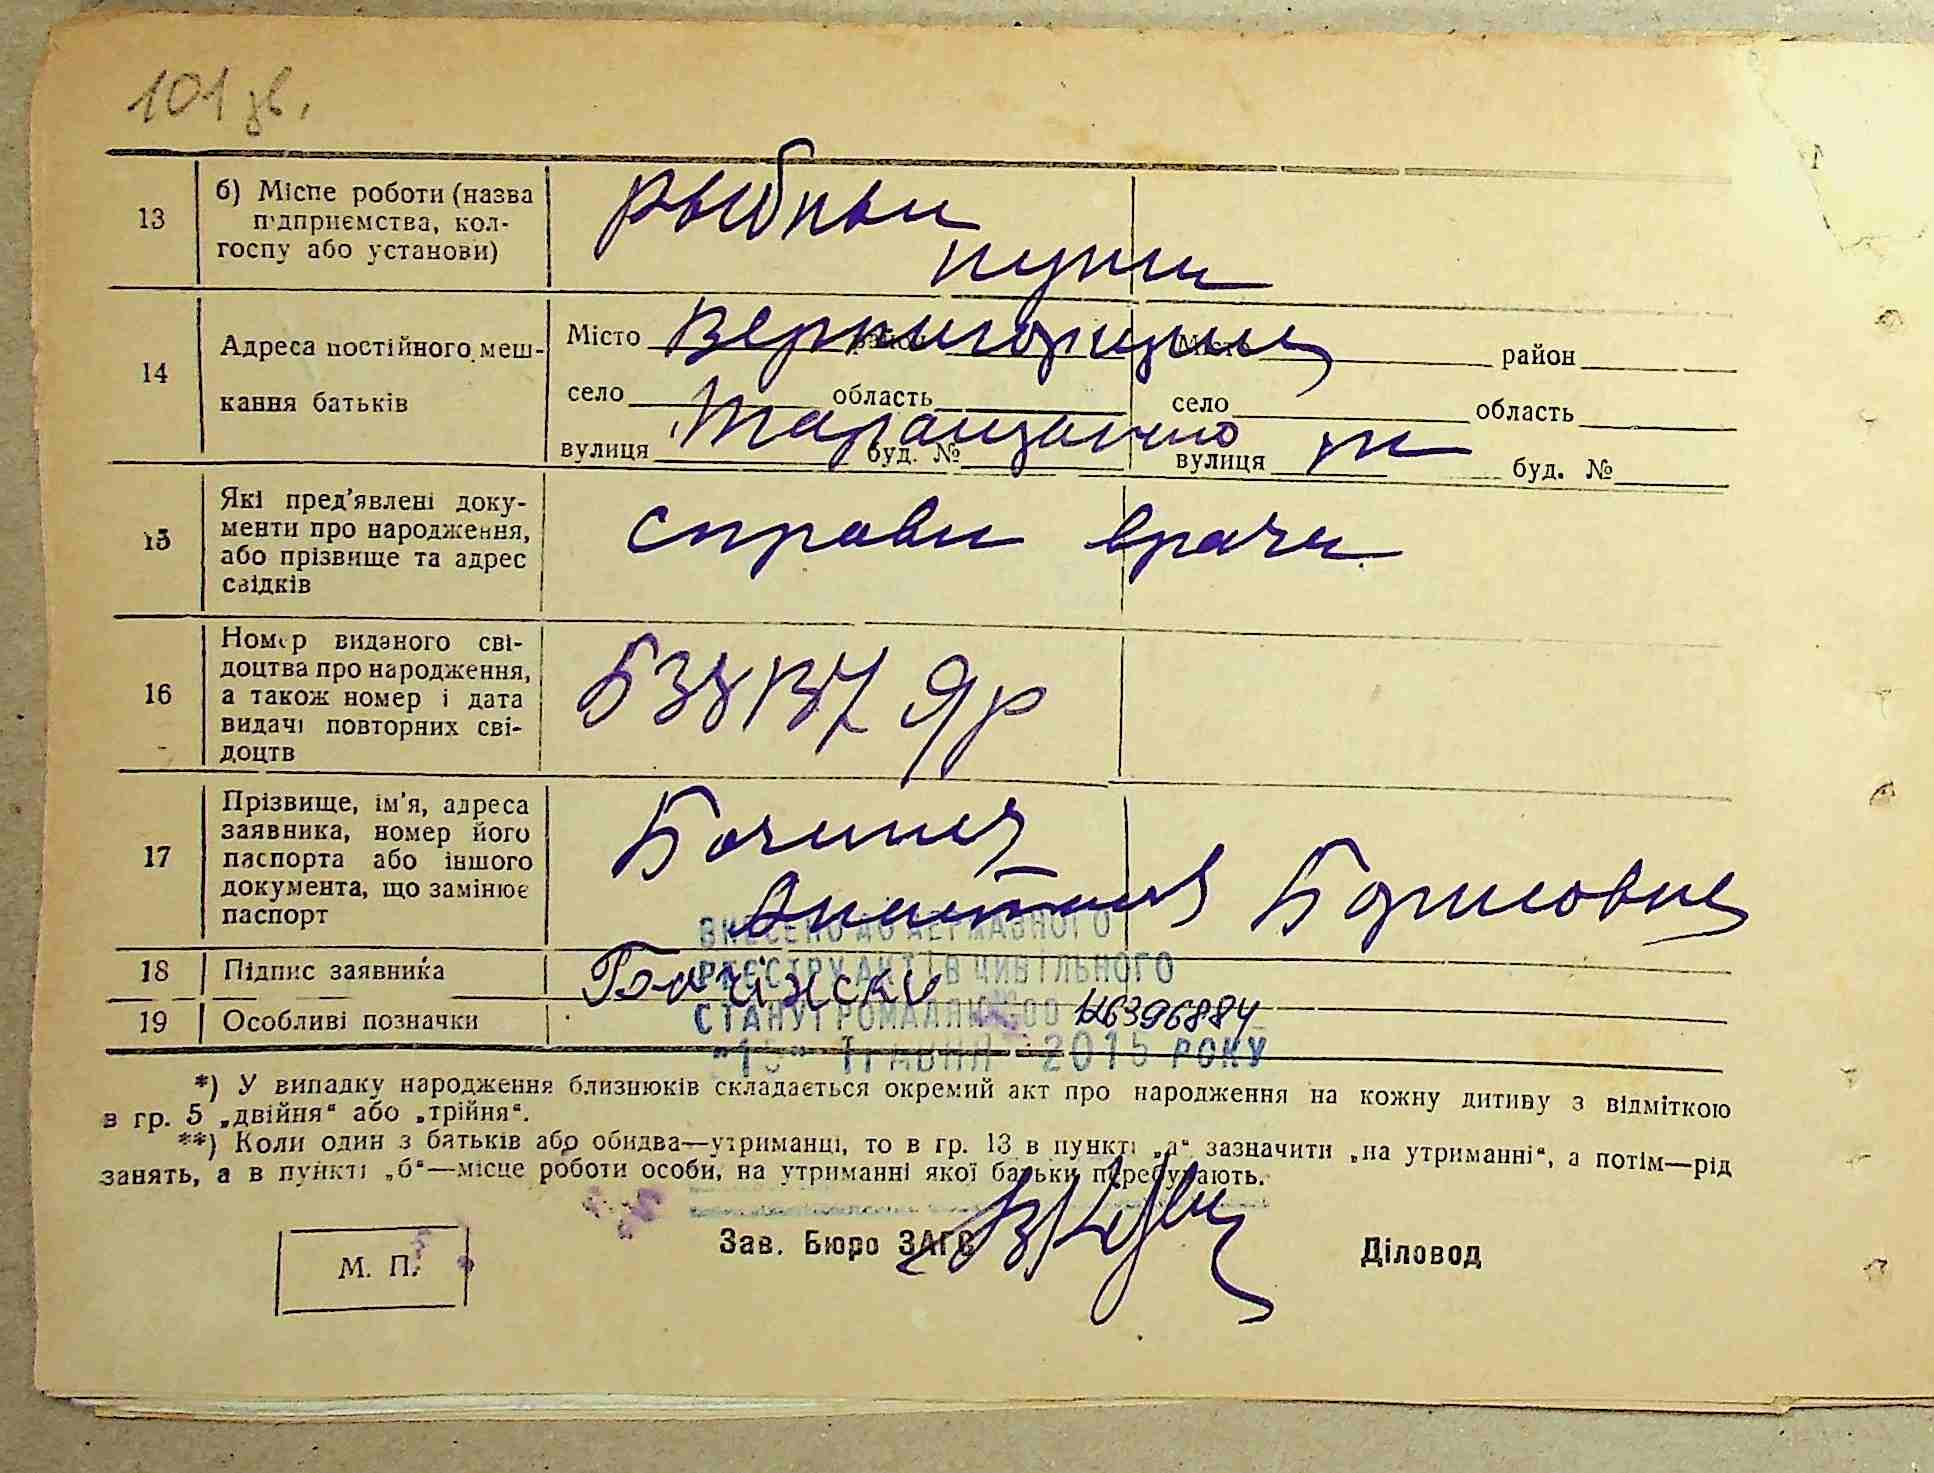 101 зв.
13
б) Місце роботи (назва
підприємства, кол-
госпу або установи)
рыбный
пункт
14
Адреса постійного меш-
кання батьків
Місто район
Місто район
село область
село область
вулиця буд. №
вулиця буд. №
15
Які пред'явлені доку-
менти про народження,
або прізвище та адрес
свідків
справки врача
16
Номер виданого сві-
доцтва про народження,
а також номер і дата
видачі повторних сві-
доцтв
17
Прізвище, ім'я, адреса
заявника, номер його
паспорта або іншого
документа, що замінює
паспорт
Борисовна
18
Підпис заявника
19
Особливі позначки
ВНЕСЕНО ДО ДЕРЖАВНОГО
РЕЄСТРУ АКТІВ ЦИВІЛЬНОГО
СТАНУ ГРОМАДЯН 00126396884
"15" ТРАВНЯ 2015 РОКУ
*) У випадку народження близнюків складається окремий акт про народження на кожну дитину з відміткою
в гр. 5 „двійня“ або „трійня“.
**) Коли один з батьків або обидва—утриманці, то в гр. 13 в пункті „а“ зазначити „на утриманні“, а потім—рід
занять, а в пункті „б“—місце роботи особи, на утриманні якої батьки перебувають.
М. П.
Зав. Бюро ЗАГС
Діловод